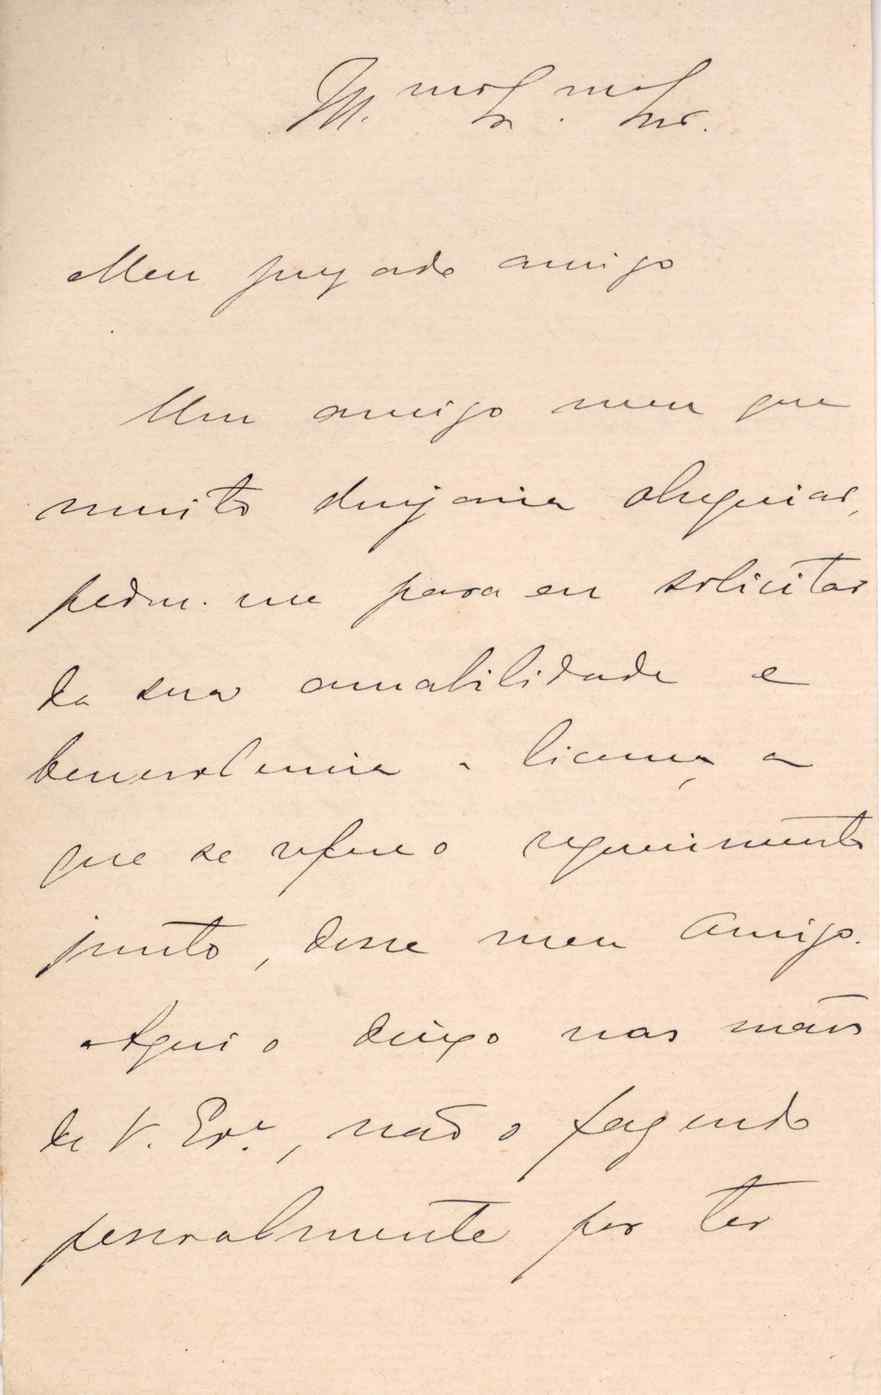 Meu presado amigo
Um amigo meu que
muito desejaria obsequiar,
pediu-me para eu solicitar
da sua amabilidade e
benevolencia a licença a
que se refere o requerimento
junto, desse meu Amigo.
Aqui o deixo nas mãos
de V. Exª, não o fazendo
pessoalmente por ter